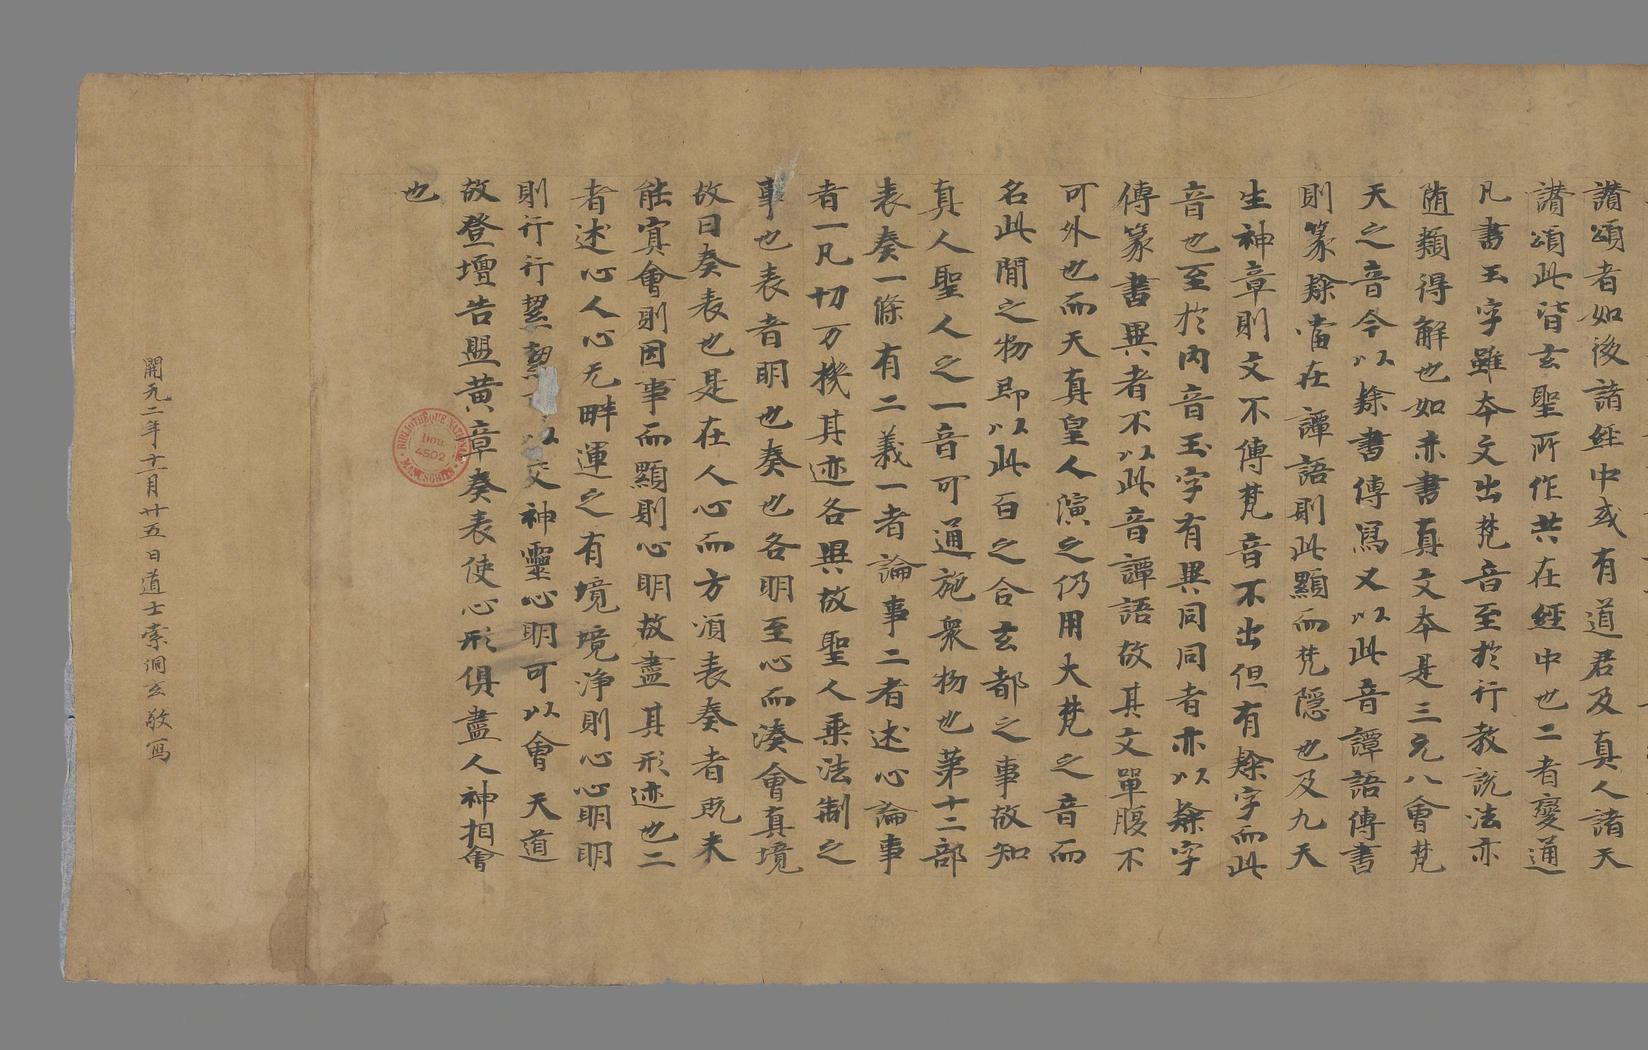 讃頌者如後諸經中或有道君及真人諸天
讃頌此皆玄聖所作共在經中也二者變通
凡書玉字雖夲文出梵音至於行教說法亦
随類得解也如赤書真文夲是三元八會梵
天之音今以𨽻書傳寫又以此音譚語傳書
則篆𨽻當在譚語則此顯而梵隱也及九天
生神章則文不傳梵音不出但有𨽻字而此
音也至於內音玉字有異同同者亦以𨽻字
傳篆書異者不以此音譚語故其文單腹不
可外也而天真皇人演之仍用大梵之音而
名此閒之物即以此百之合玄都之事故知
真人聖人之一音可通施衆物也第十二部
表奏一條有二義一者論事二者述心論事
者一凡切万機其迹各異故聖人乗法制之
事也表者明也奏也各明至心而湊會真境
故曰奏表也是在人心而方湏表奏者既未
能㝠會則因事而顯則心明故盡其形迹也二
者述心人心无畔運之有境境淨則心心明明
則行行行潔潔 以交神靈心明可以會天道
故登壇告盟黄章奏表使心形俱盡人神相會
也
開元二年十一月廿五日道士索洞玄敬寫
BIBLIOTHÈQUE NATIONALE MANUSCRITS
Dou
4502